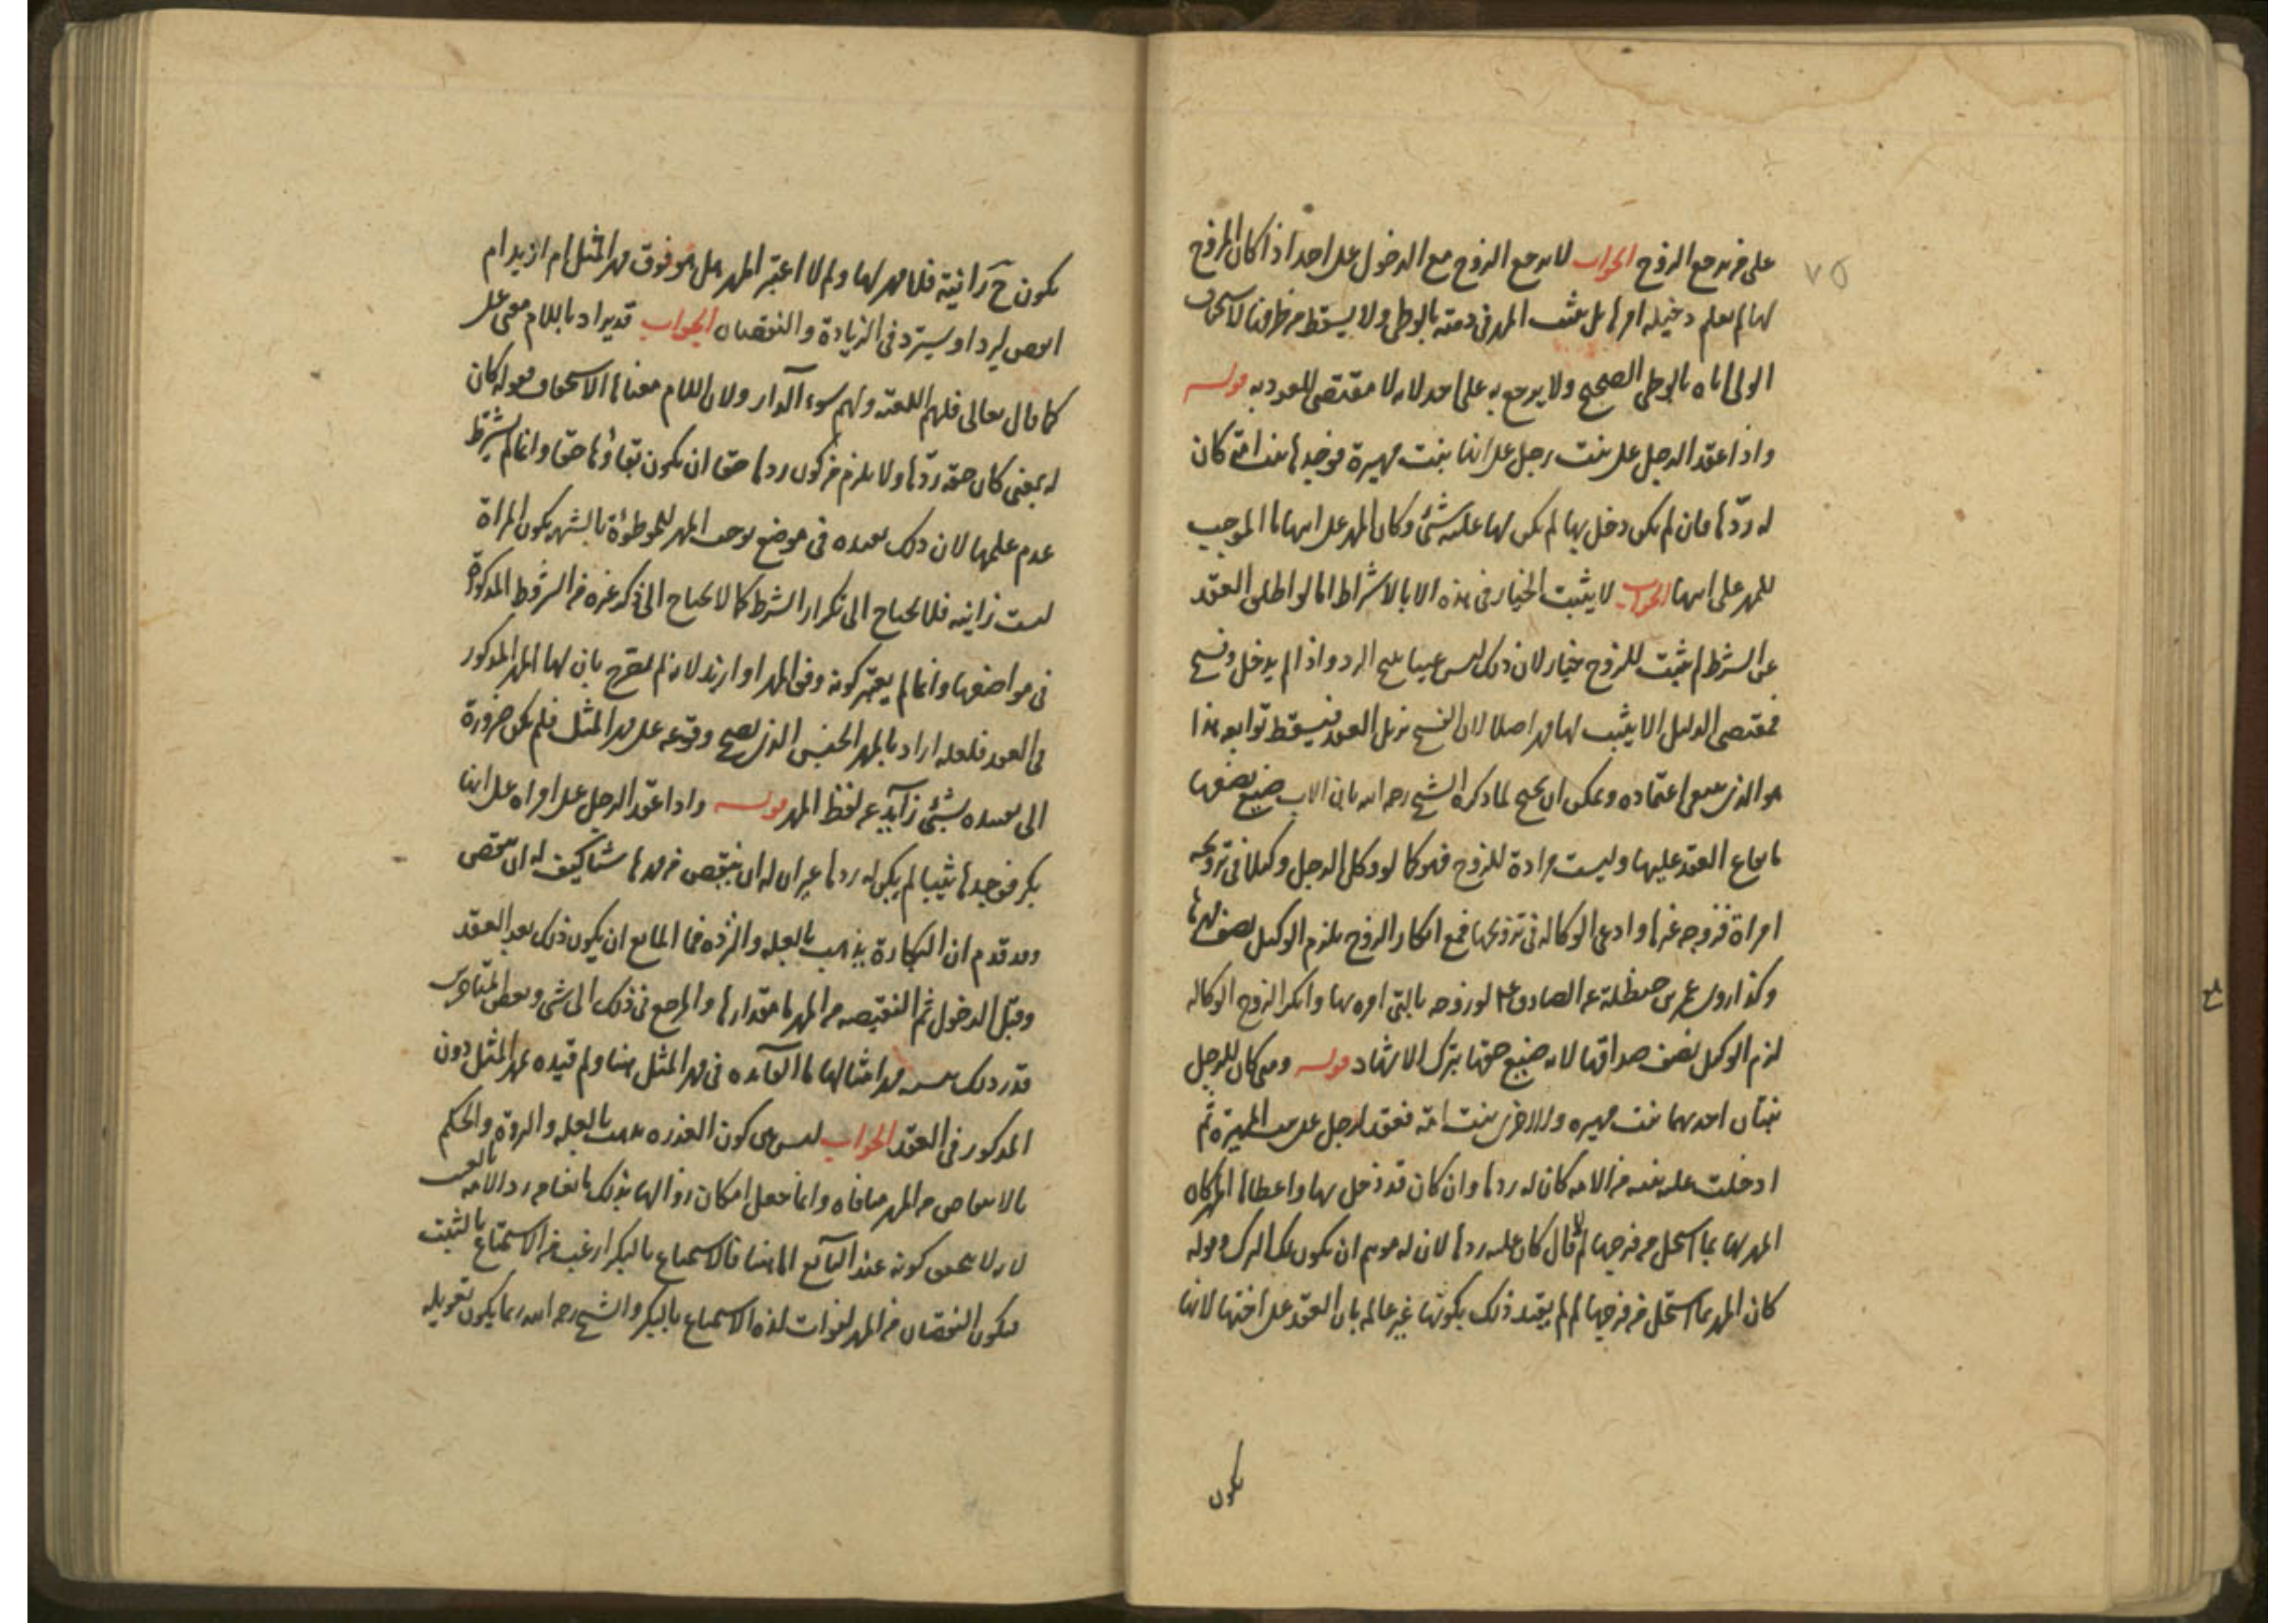 على من يرجع الزوج الجواب لا يرجع الزوج مع الدخول على احد اذا كان المزوج
لها لم يعلم دخيلة امرها بل يثبت المهر فى ذمته بالوطى ولا يسقط من طرفنا لاستحقاق
الولى اياه بالوطى الصحيح ولا يرجع به على احد لانه لا مقتضى للعود به قوله
واذا عقد الرجل على بنت رجل على انها بنت مهيرة فوجدها بنت امة كان
له ردّها فان لم يكن دخل بها لم يكن لها عليه شئ وكان المهر على ابيها ما الموجب
للمهر على ابيها الجواب لا يثبت الخيار فى هذه الا بالاشتراط اما لو اطلق العقد
عن الشرط لم يثبت للزوج خيار لان ذلك ليس عيبا يبيح الرد واذا لم يدخل وفسخ
فمقتضى الدليل الا يثبت لها مهر اصلا لان الفسخ يزيل العقد فيسقط توابعه هذا
هو الذى ينبغى اعتماده ويمكن ان يحتج لما ذكره الشيخ رحمه الله بان الاب ضيع بضعها
بايقاع العقد عليها وليست مرادة للزوج فهو كما لو وكل الرجل وكيلا فى تزويجه
امراة فزوجه غيرها وادعى الوكالة فى تزويجها فمع انكار الزوج يلزم الوكيل نصف مهرها
وكذا روى عمر بن حنظلة عن الصادق ع لو زوجه بالتى امره بها وانكر الزوج الوكالة
لزم الوكيل نصف صداقها لانه ضيع حقها بترك الاشهاد قوله ومتى كان للرجل
بنتان احدهما بنت مهيرة والاخرى بنت امة فعقد لرجل على بنت المهيرة ثم
ادخلت عليه بنته من الامة كان له ردها وان كان قد دخل بها واعطاها المهر كان
المهر لها بما استحل من فرجها لم قال كان عليه ردها لان له موهم ان يكون ملك الترك وقوله
كان المهر بما استحل من فرجها لم لم يقيد ذلك بكونها غير عالمة بان العقد على اختها لانها
يكون
يكون ح زانية فلا مهر لها ولم لا اعتبر المهر هل هو فوق مهر المثل ام ازيد ام
انقص ليرد او يسترد فى الزيادة والنقصان الجواب قد يراد باللام معنى على
كما قال تعالى فلهم اللعنة ولهم سوء الدار ولان اللام معناها الاستحقاق فقوله كان
له بمعنى كان حقه ردّها ولا يلزم من كون ردها حقا ان يكون بقاؤها حقا وانما لم يشترط
عدم علمها لان ذلك بعيده فى موضع يوجب المهر للموطوءة بالشبهة يكون المراة
ليست زانية فلا يحتاج الى تكرار الشرط كما لا يحتاج الى ذكر غيره من الشروط المذكورة
فى مواضعها وانما لم يعتبر كونه وفق المهر او ازيد لانه لم يصرح بان لها المهر المذكور
فى العقد فلعله اراد بالمهر الجنس الذى يصح وقوعه على مهر المثل فلم يكن ضرورة
الى تقييده بشئ زايد عن لفظ المهر قوله واذا عقد الرجل على امراة على انها
بكر فوجدها ثيبا لم يكن له ردها غير ان له ان ينقص من مهرها شيئا كيف له ان ينقص
وقد قدم ان البكارة يذهب بالعلة والنزوة فما المانع ان يكون ذلك بعد العقد
وقبل الدخول ثم النقيصة من المهر ما مقدارها والمرجع فى ذلك الى شئ وبعض المتأخرين
قدر ذلك بنسبة مهر امثالها ما الفائدة فى مهر المثل هنا ولم قيده بمهر المثل دون
المذكور فى العقد الجواب ليس بين كون العذرة يذهب بالعلة والنزوة والحكم
بالانتقاص من المهر منافاة وانما جعل امكان زوالها بذلك مانعا من رد الامة بالعيب
لانه لا يتحقق كونه عند البايع اما هنا فالاستمتاع بالبكر ارغب من الاستمتاع بالثيب
فيكون النقصان من المهر لفوات لذة الاستمتاع بالبكر والشيخ رحمه الله ربما يكون تعويله